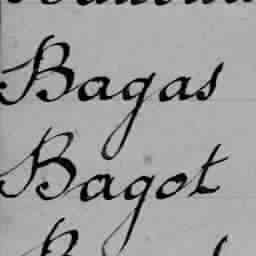 Bagas
Bagot